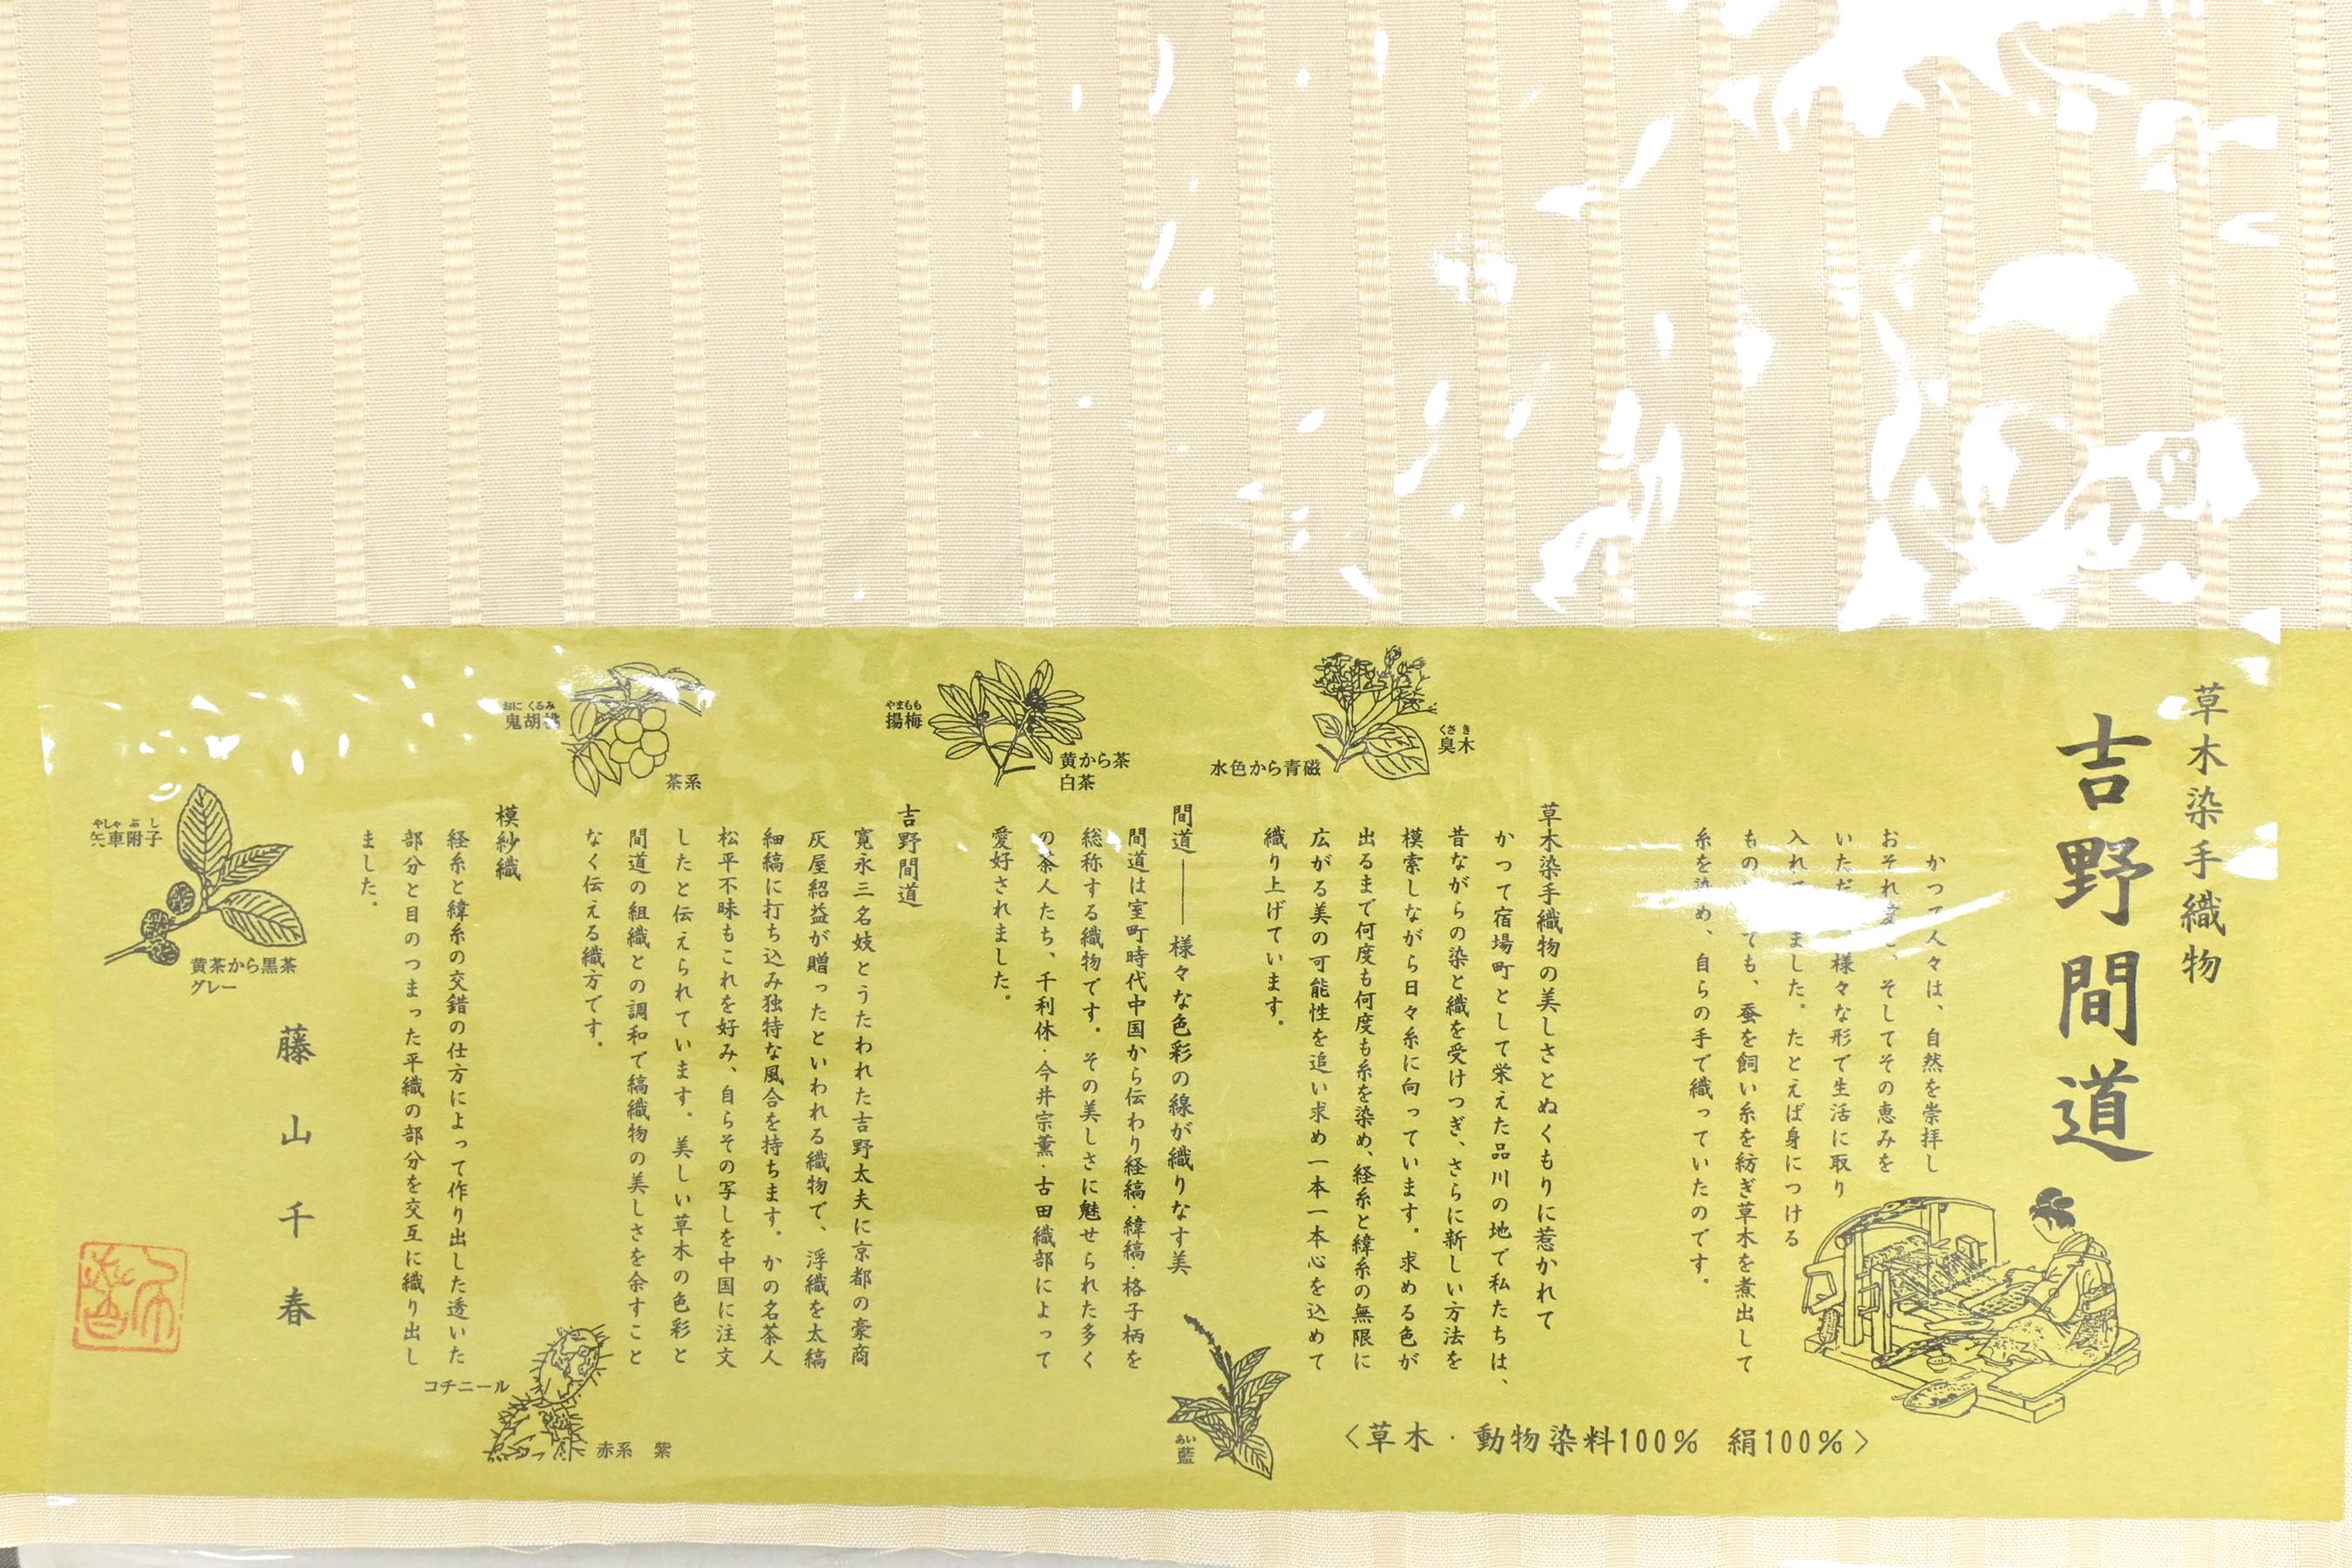 草木染手織物
吉野間道
かつて人々は、自然を崇拝し
おそれ、そしてその恵みを
いただ様々な形で生活に取り
入れました。たとえば身につける
ものても、蚕を飼い糸を紡ぎ草木を煮出して
糸を染め、自らの手で織っていたのです。
〈草木・動物染料100% 絹100%〉
草木染手織物の美しさとぬくもりに惹かれて
かつて宿場町として栄えた品川の地で私たちは、
昔ながらの染と織を受けつぎ、さらに新しい方法を
模索しながら日々糸に向っています。求める色が
出るまで何度も何度も糸を染め、経糸と緯糸の無限に
広がる美の可能性を追い求め一本一本心を込めて
織り上げています。
くさき
臭木
水色から青磁
あい
藍
間道――様々な色彩の線が織りなす美
間道は室町時代中国から伝わり経縞・緯縞・格子柄を
総称する織物です。その美しさに魅せられた多く
の茶人たち、千利休・今井宗薫・古田織部によって
愛好されました。
やまもも
揚梅
黄から茶
白茶
吉野間道
寛永三名妓とうたわれた吉野太夫に京都の豪商
灰屋紹益が贈ったといわれる織物で、浮織を太縞
細縞に打ち込み独特な風合を持ちます。かの名茶人
松平不昧もこれを好み、自らその写しを中国に注文
したと伝えられています。美しい草木の色彩と
間道の組織との調和で縞織物の美しさを余すこと
なく伝える織方です。
おにくるみ
鬼胡桃
茶系
コチニール
赤系 紫
模紗織
経糸と緯糸の交錯の仕方によって作り出した透いた
部分と目のつまった平織の部分を交互に織り出し
ました。
やしゃぶし
矢車附子
黄茶から黒茶
グレー
藤山千春